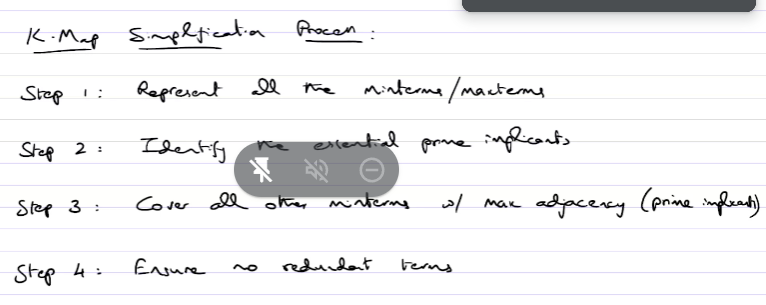 K-Map Simplification Process:
Step 1: Represent all the minterms/maxterms
Step 2: Identify the essential prime implicants
Step 3: Cover all other minterms w/ max adjacency (prime implicants)
Step 4: Ensure no redundant terms